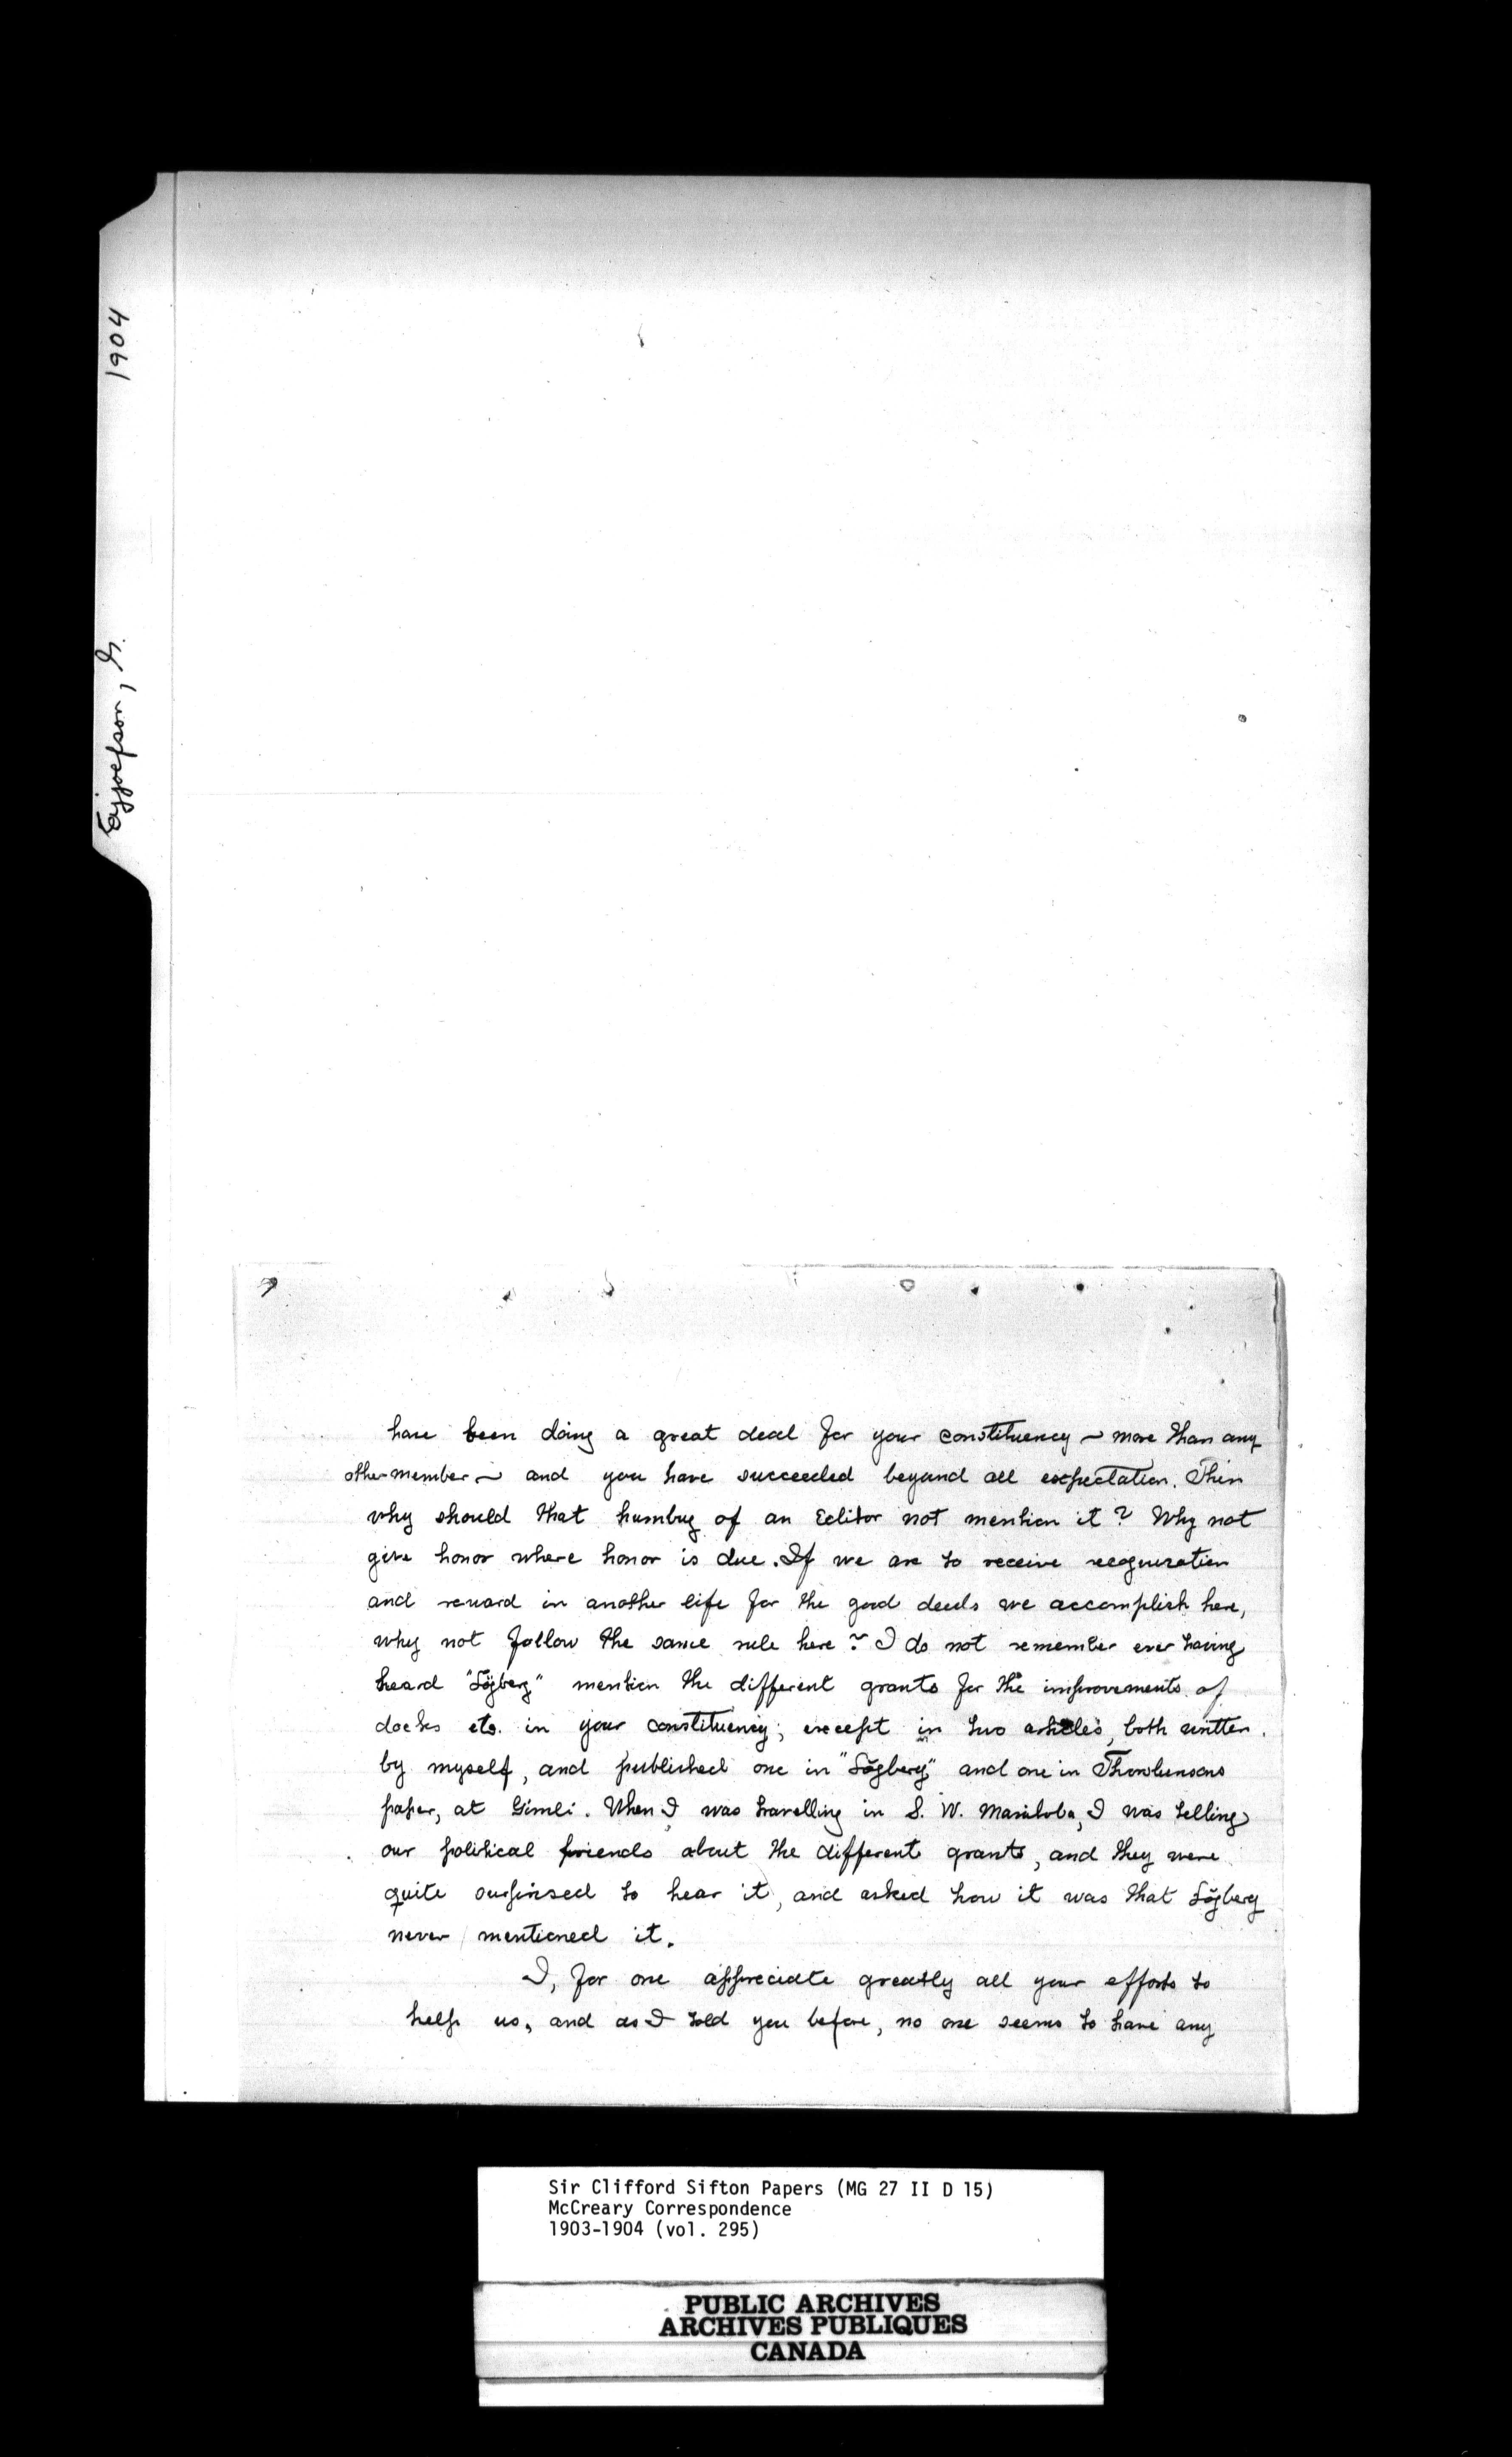 1904
Eyjolfson, G.
have been doing a great deal for your constituency ~ more than any
other member ~ and you have succeeded beyond all expectation. Then
why should that humbug of an Editor not mention it? Why not
give honor where honor is due. If we are to receive
and reward in another life for the good deeds we accomplish here,
why not follow the same rule here? I do not remember ever having
heard "Lögberg" mention the different grants for the improvements of
docks etc. in your constituency; except in two articles, both written
by myself, and published one in "Lögberg" and one in
paper, at Gimli. When I was travelling in S. W. Manitoba, I was telling
our political friends about the different grants, and they were
quite surprised to hear it, and asked how it was that Lögberg
never mentioned it.
I, for one appreciate greatly all your efforts to
help us, and as I told you before, no one seems to have any
Sir Clifford Sifton Papers (MG 27 II D 15)
McCreary Correspondence
1903-1904 (vol. 295)
PUBLIC ARCHIVES
ARCHIVES PUBLIQUES
CANADA